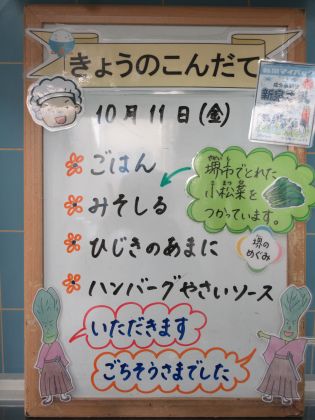 きょうのこんだて
10月11日(金)
ごはん
みそしる
ひじきのあまに
ハンバーグやさいソース
堺市でとれた
小松菜を
つかっています。
堺の
めぐみ
いただきます
ごちそうさまでした